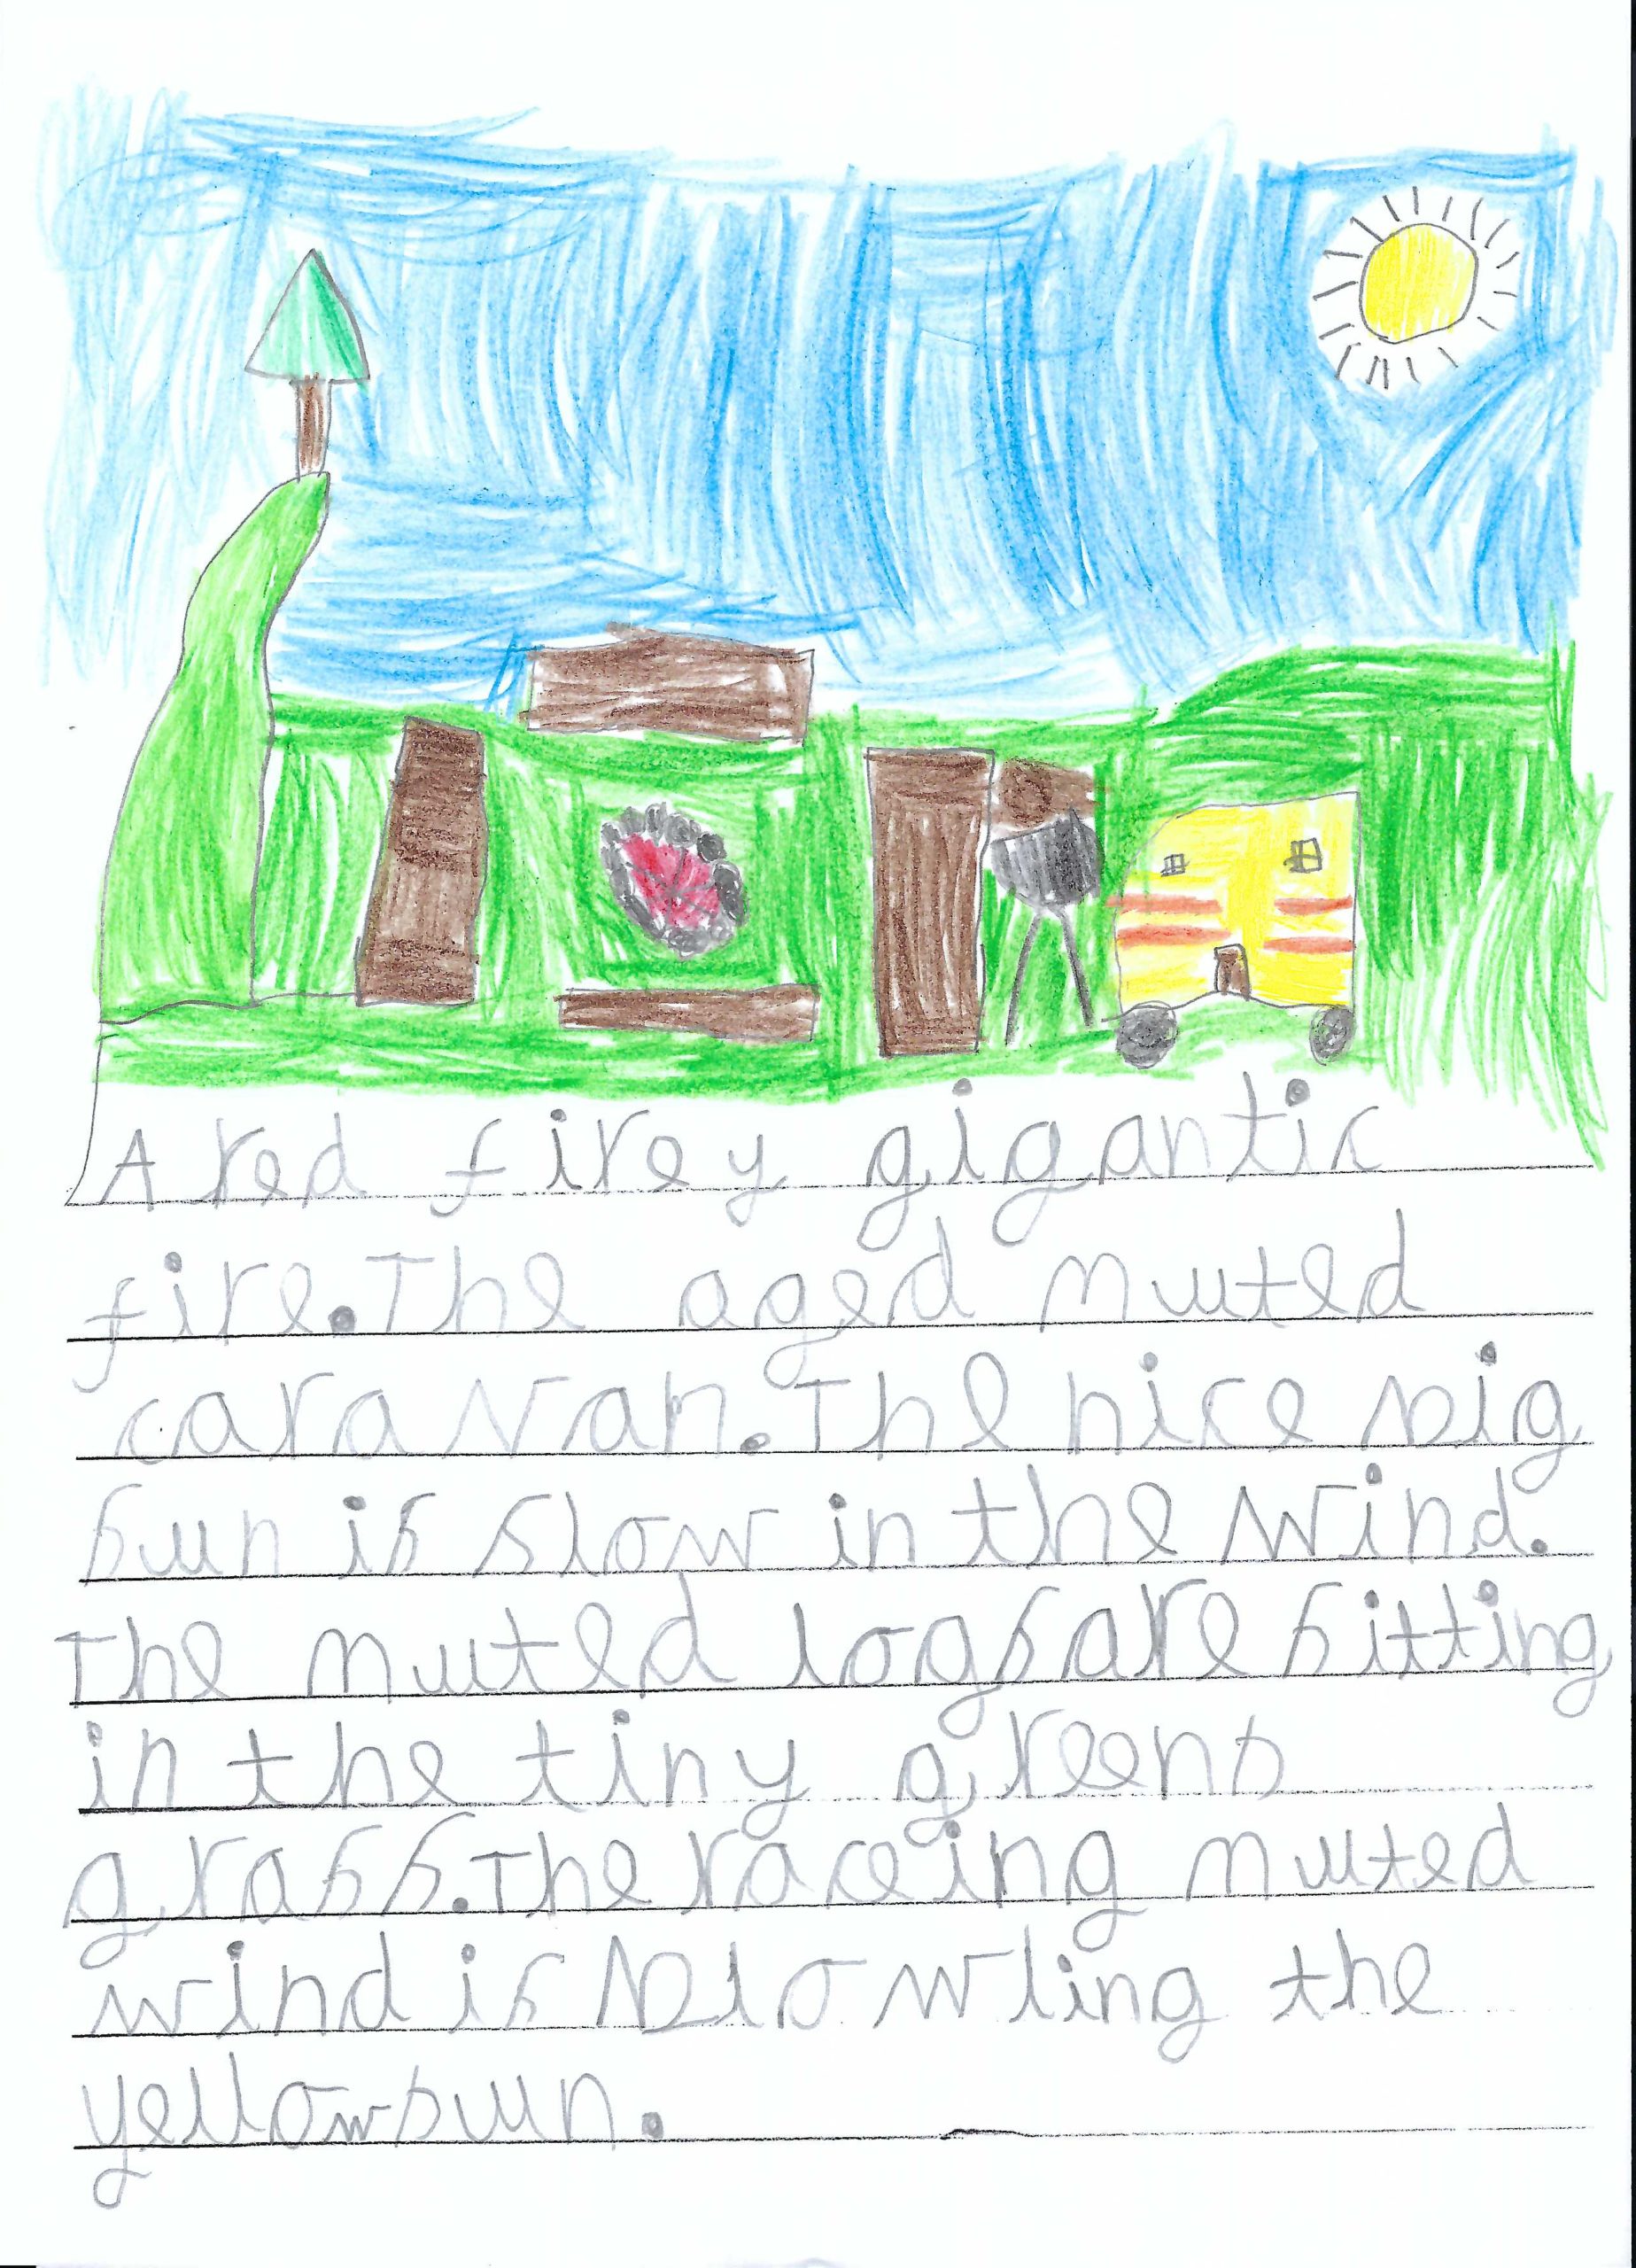 A red firey gigantic
fire.The aged muted
caravan.The nice big
sun is slow in the wind.
The muted logs are sitting
in the tiny greens
grass.The raceing muted
wind is blowling the
yellow sun.